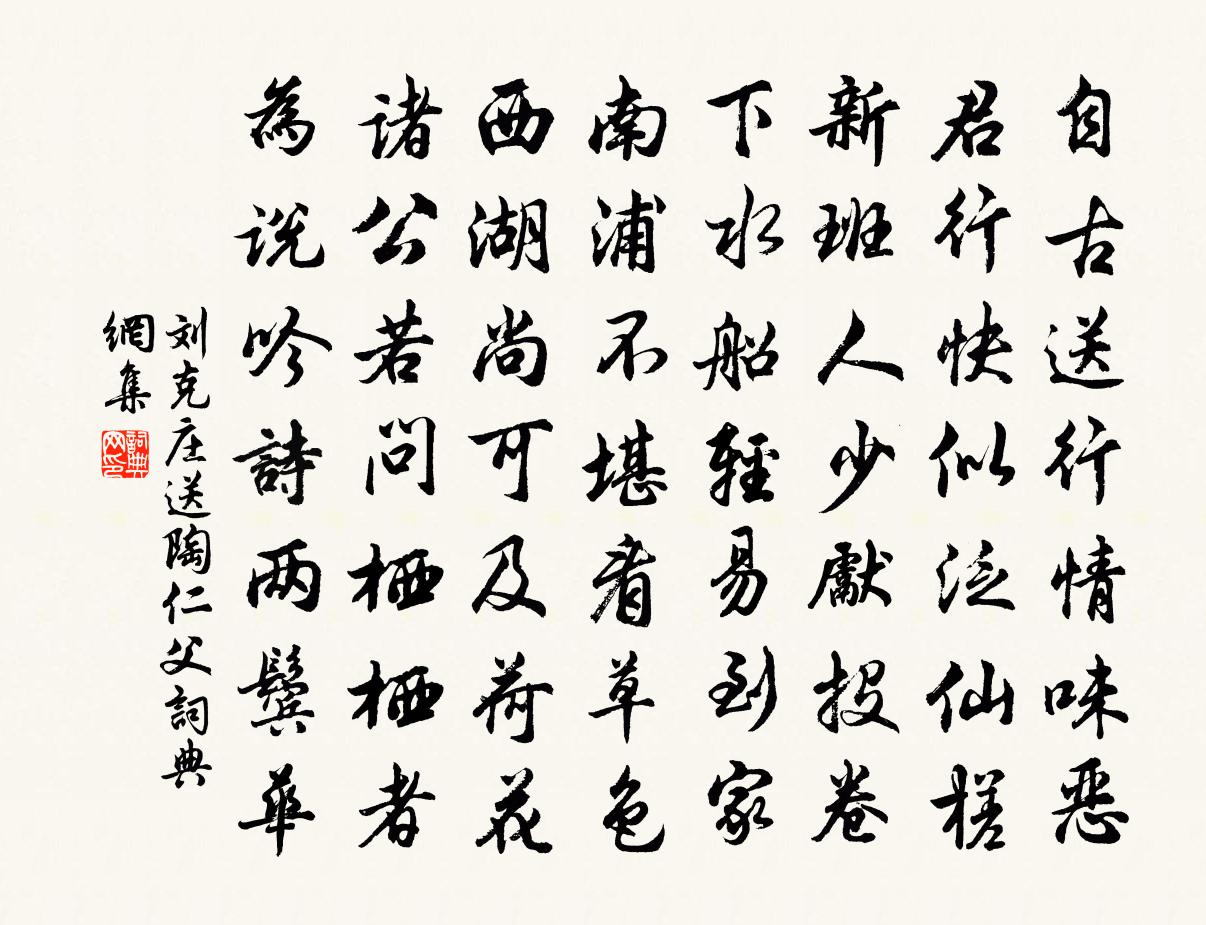 自古送行情味恶
君行快似泛仙槎
新班人少獻投卷
下水船輕易到家
南浦不堪看草色
西湖尚可及荷花
诸公若问栖栖者
為说吟詩两鬓華
刘克庄送陶仁父詞典
網集
詞典
网印